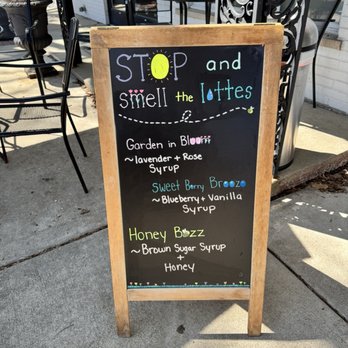 STOP and
smell the lattes
Garden in Bloom
~lavender + Rose
Syrup
Sweet Berry Breeze
~Blueberry + Vanilla
Syrup
Honey Buzz
~Brown Sugar Syrup
+
Honey